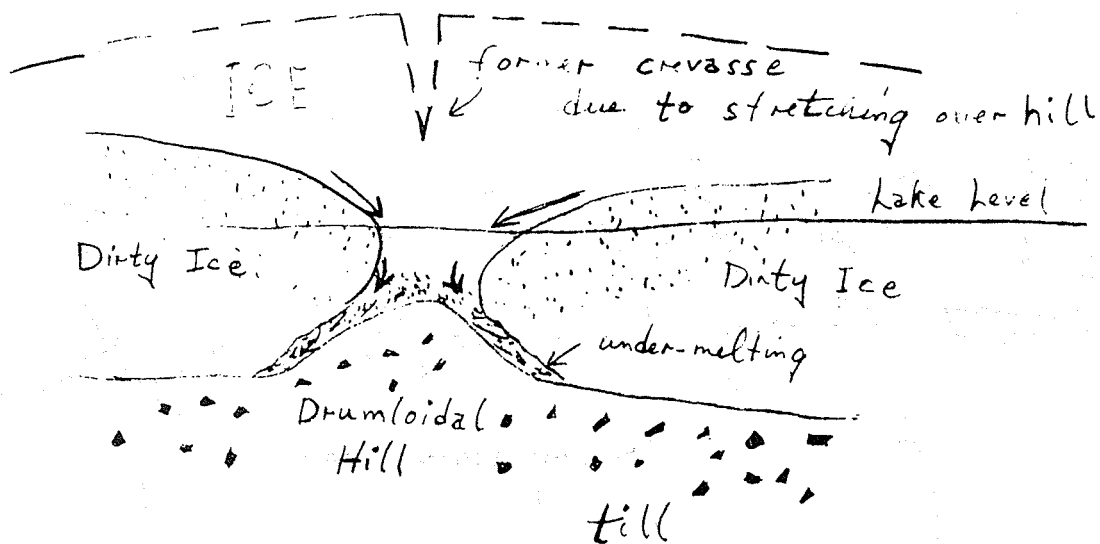 ICE
former crevasse
due to stretching over hill
Lake Level
Dirty Ice
Dirty Ice
under-melting
Drumloidal
Hill
till